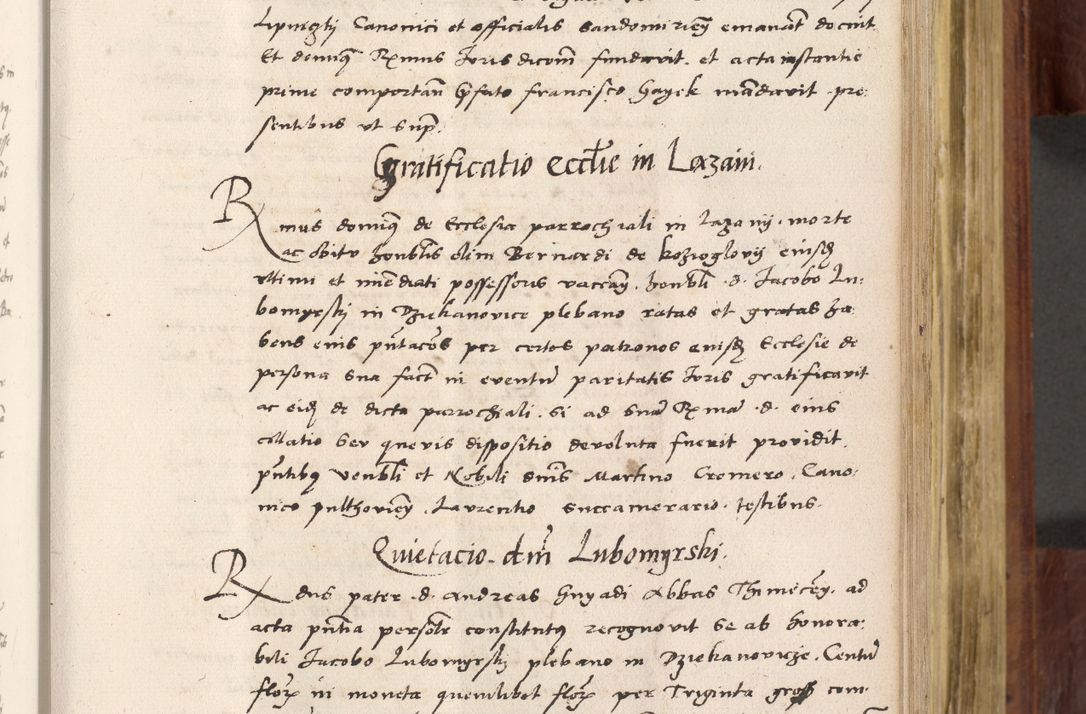 Lipniczki Canonici et officialis Sandomirien emanat docuit
Et dominus Rxmus Jurisdicom fundavit et acta instantie
prime comportan pfato francisco Hayek mandavit pre
sentibus ut sup.
Gratificatio eccltie in Lazani.
Rmus dominus de Ecclesia parrochiali in Lazanij morte
ac obitu honblis olim Bernardi de Kozieglovij eiusdem
ultimi et imediati possessoris vacan. honbli d. Jacobo Lu:
bomyrskj in Dziekanovice plebano ratas et gratas ha:
bens eius pntacos per certos patronos eiusdem Ecclesie de
persona sua fact in eventu paritatis Juris gratificavit
ac eidem de dicta parrochiali si ad Suã Rmã d. eius
collatio seu quevis dispositio devoluta fuerit providit.
pntibus venbli et Nobili dnis Martino Cromero Cano:
nico pulthovien Laurentio Succamerario testibus.
Quietacio dni Lubomyrski.
Rdus pater d. Andreas Hnyadi Abbas Thinecen ad
acta pntia personlr constitutus recognovit se ab honora:
bili Jacobo Lubomyrskj plebano in Dziekanovicze Centũ
flor in moneta quemlibet flor per Triginta gross com